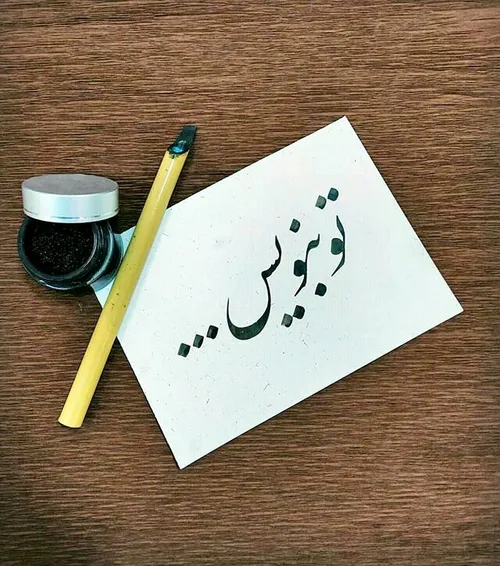 تو بنویس...